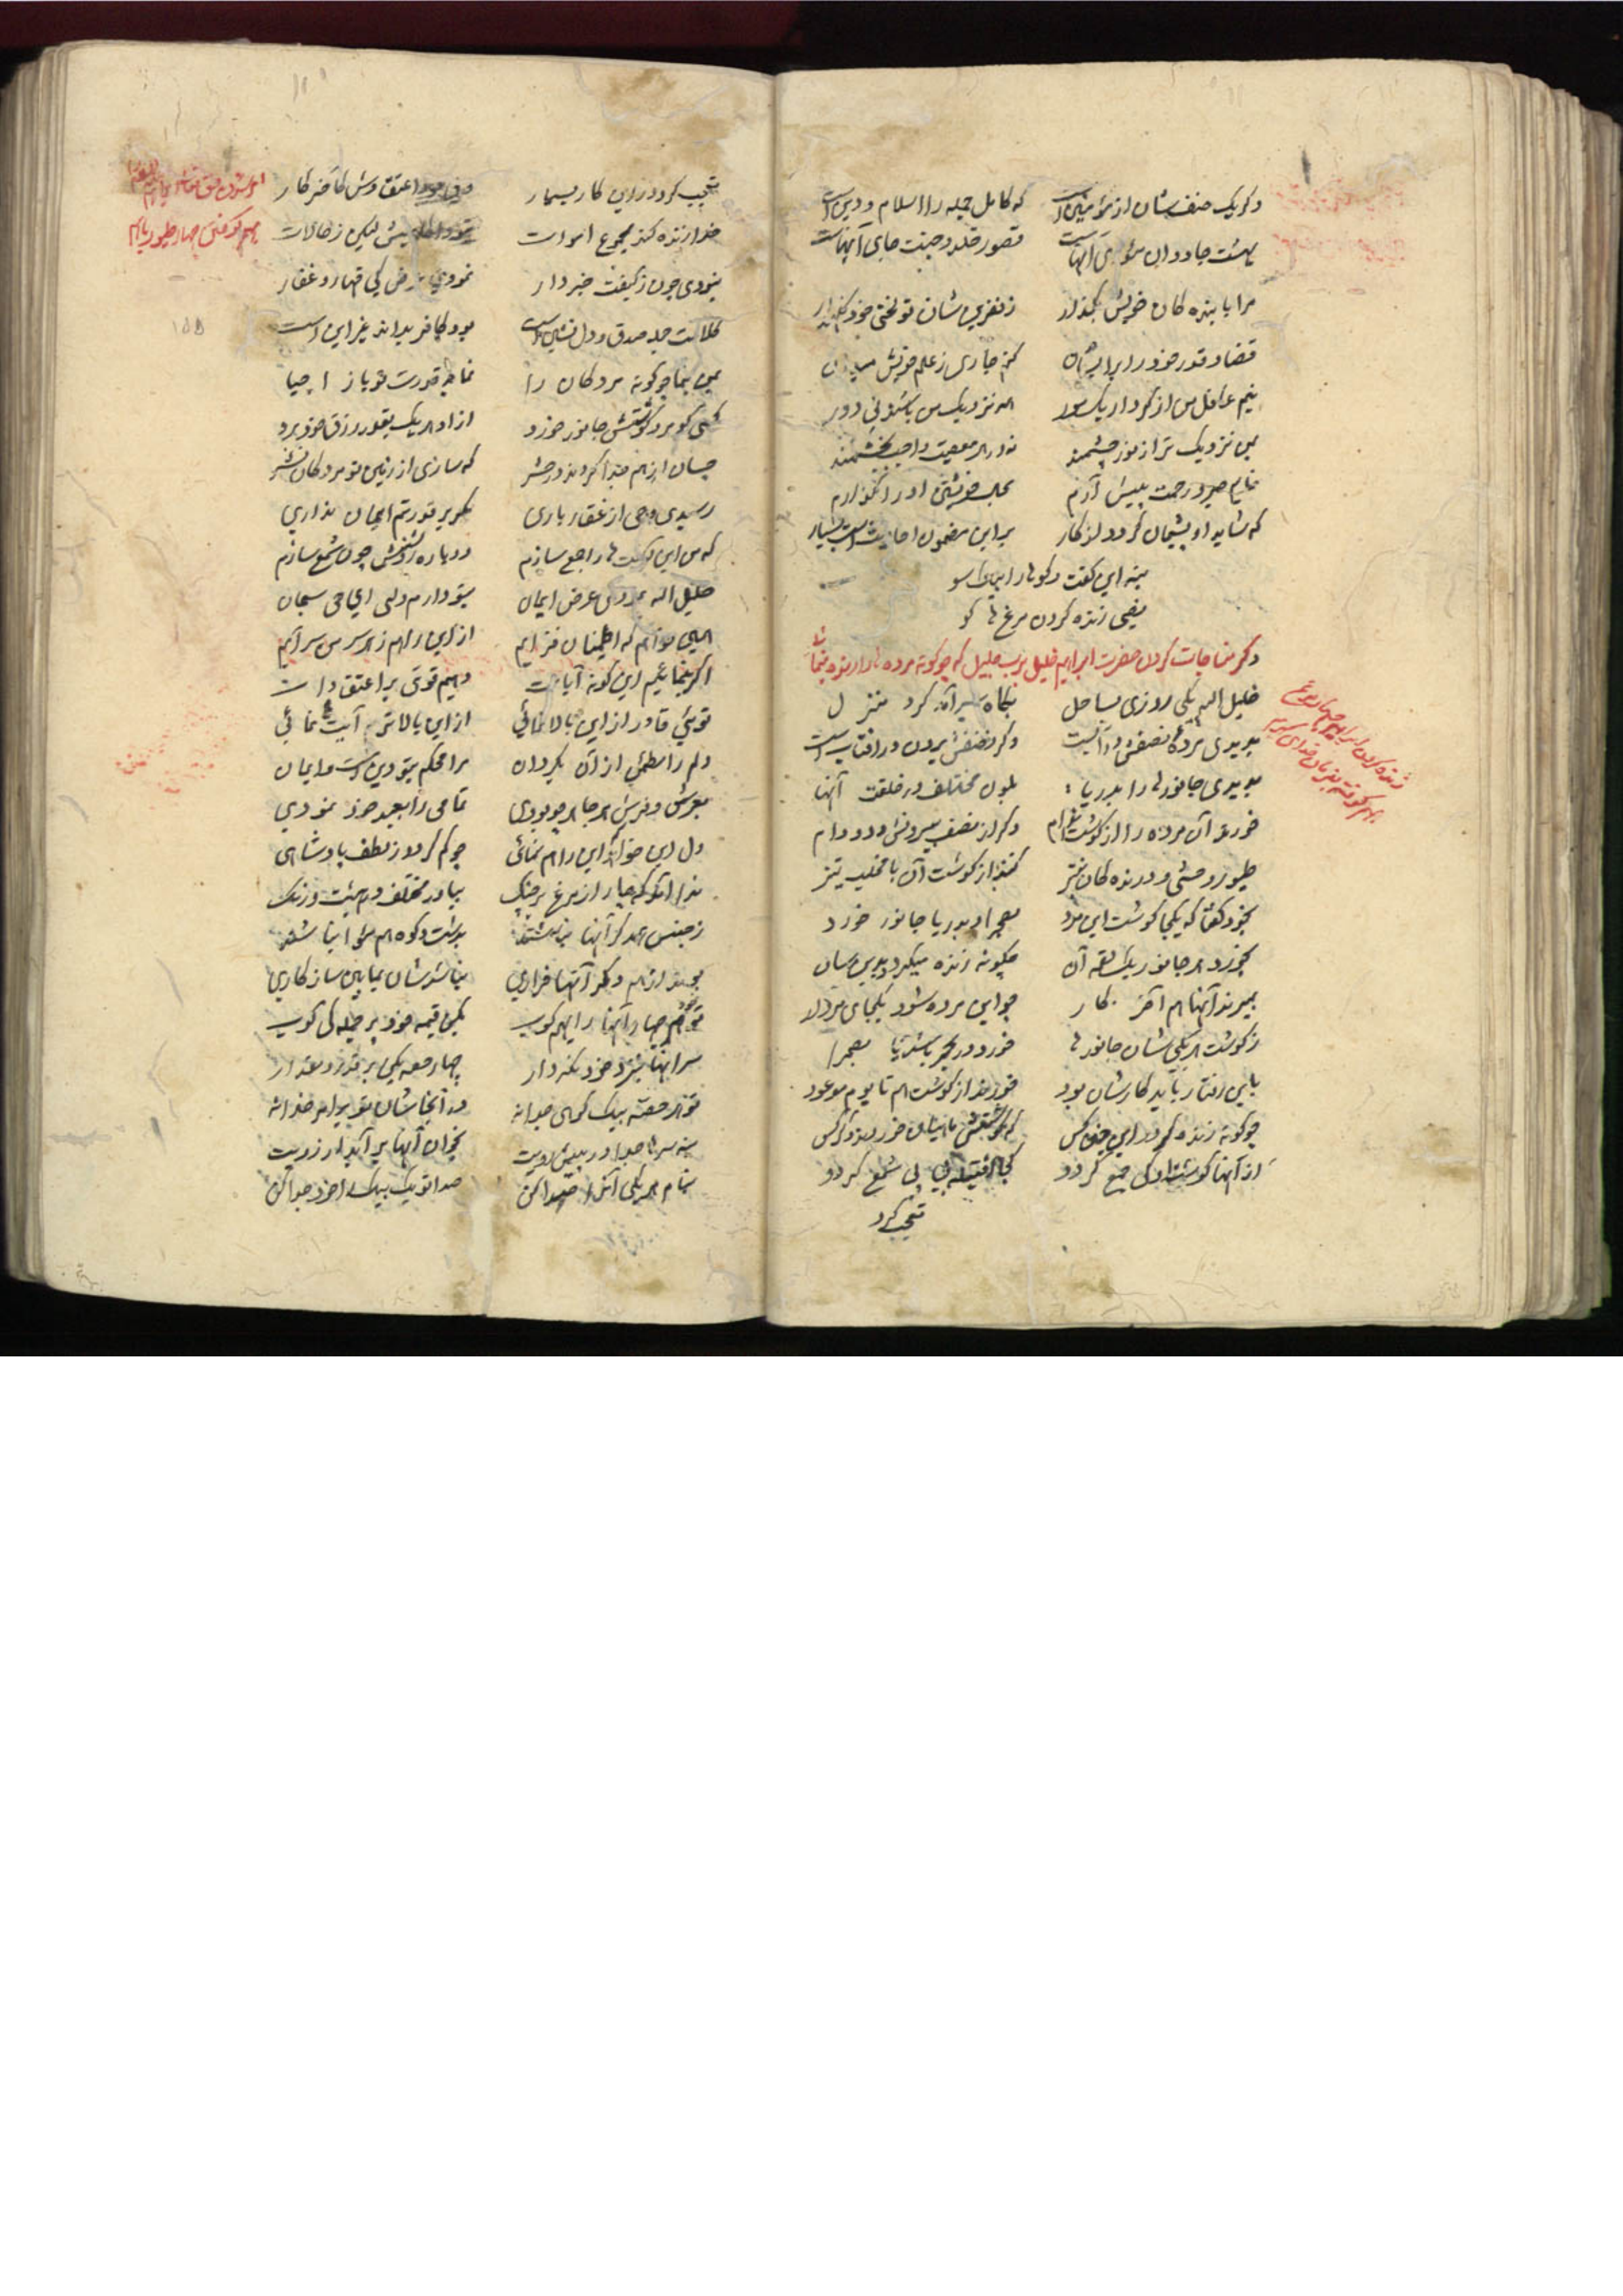 دگر یک صنف شان از مؤمنین است که کامل جمله را اسلام و دین است
بهشت جاودان مثوای آنهاست قصور خلد و جنت جای آنهاست
مرا با بنده کان خویش بگذار ز نفرین شان تو لختی خود نگهدار
قضا و قدر خود را بر ایشان کنم جاری ز علم خویش میدان
نیم غافل من از کردار یک مور نزدیک من باشد نی دور
من نزدیک تر از نور چشمند نه در معصیت واجب بخشمند
نمایم صبر و رحمت پیش آرم بحال خویشتن او را گذارم
که شاید او پشیمان گردد از کار بر این مضمون احادیث است بسیار
بنه این گفت و گو را
زنده کردن مرغ ها گو
ذکر مناجات کردن حضرت ابراهیم خلیل برب جلیل که چوگونه مرده ها را زنده نماید
خلیل الله یکی روزی بساحل بگاه سیر آمد کرد منزل
بدیدی مرده نصفش در آبست دگر نصفش برون در آفتاب است
بدیدی جانورها را بدریا بلون مختلف در خلقت آنها
خورند آن مرده را از گوشت دگر از نصف بیرونش دد و دام
طیور وحشی و درنده کان نیز کنند از گوشت آن با مخلب تیز
بخود گفتا که یکجا گوشت این مرد بصحرا و بدریا جانور خورد
بخورد هر جانور یک لقمه آن چگونه زنده میگردد بدین سان
بمیرند آنها هم آخر کار چو این مرده شود یکجای مردار
ز گوشت هر یکی شان جانورها خورد در بحر باشد یا بصحرا
باین رفتار باید کارشان بود خورند از گوشت هم تا یوم موعود
چوگونه زنده گردد این چنین کس که گوشتش ماهیان خوردند و کرکس
از آنها گوشت او کی جمع گردد کجا فتیله بی پی شمع گردد
تعجب کرد
زنده کردن ابراهیم چهار مرغ
بهم کوفته بفرمان خدای
تعجب کرد در این کار بسیار
خدا زنده کند مجموع اموات
نبودی چون ز کیفیت خبردار نمودی عرض کی قهار و غفار
کلامت جمله صدق و دل نشین است بود کافر بداند غیر این است
بمن بنما چوگونه مردگان را نمائی قدرت خود باز احیا
کسی کو مرد گوشتش جانور خورد از او هر یک بقدر رزق خود برد
چسان از هم جدا گردند در حشر که سازی از زمین تو مردگان نشر
رسیدی وحی از غفار باری مگر بر قدرتم ایمان نداری
که من این گوشت ها راجع سازم دوباره روشنش چون شمع سازم
خلیل الله نمودی عرض ایمان بتو دارم ولی ای حی سبحان
همی خواهم که اطمینان فزایم از این راهم ز سر سرایم
اگر بنمائیم این گونه آیات دهیم قوتی بر اعتقادات
توئی قادر از این بالا نمائی از این بالاتر آیت ها نمائی
دلم را مطمئن از آن بگردان مرا محکم بتو دین است و ایمان
بعرش و فرش هر جا هر چه بودی تمامی را بعبد خود نمودی
دل این خواهد این را هم نمائی چو کم گردد ز لطف پادشاهی
ندا آمد که چار از مرغ بر چنگ بیاور مختلف در هیئت و رنگ
ز جنس همدگر آنها نباشند بدشت و کوه هم مؤا نباشند
بجویند از هم دگر آنها فراری نباشد شان بمابین سازگاری
تو هم چهار آنها را بهم کوب بکن قیمه خود بر جمله کی کوب
سر آنها بنزد خود نگه دار چهار حصه بکن بر قدر و مقدار
تو هر حصه بیک کوهی جدا نه
بنه سرها جدا در پیش رویت بخوان آنها برآید آرزویت
بنام هر یکی آنرا صدا کن صدا تو یک بیک از خود جدا کن